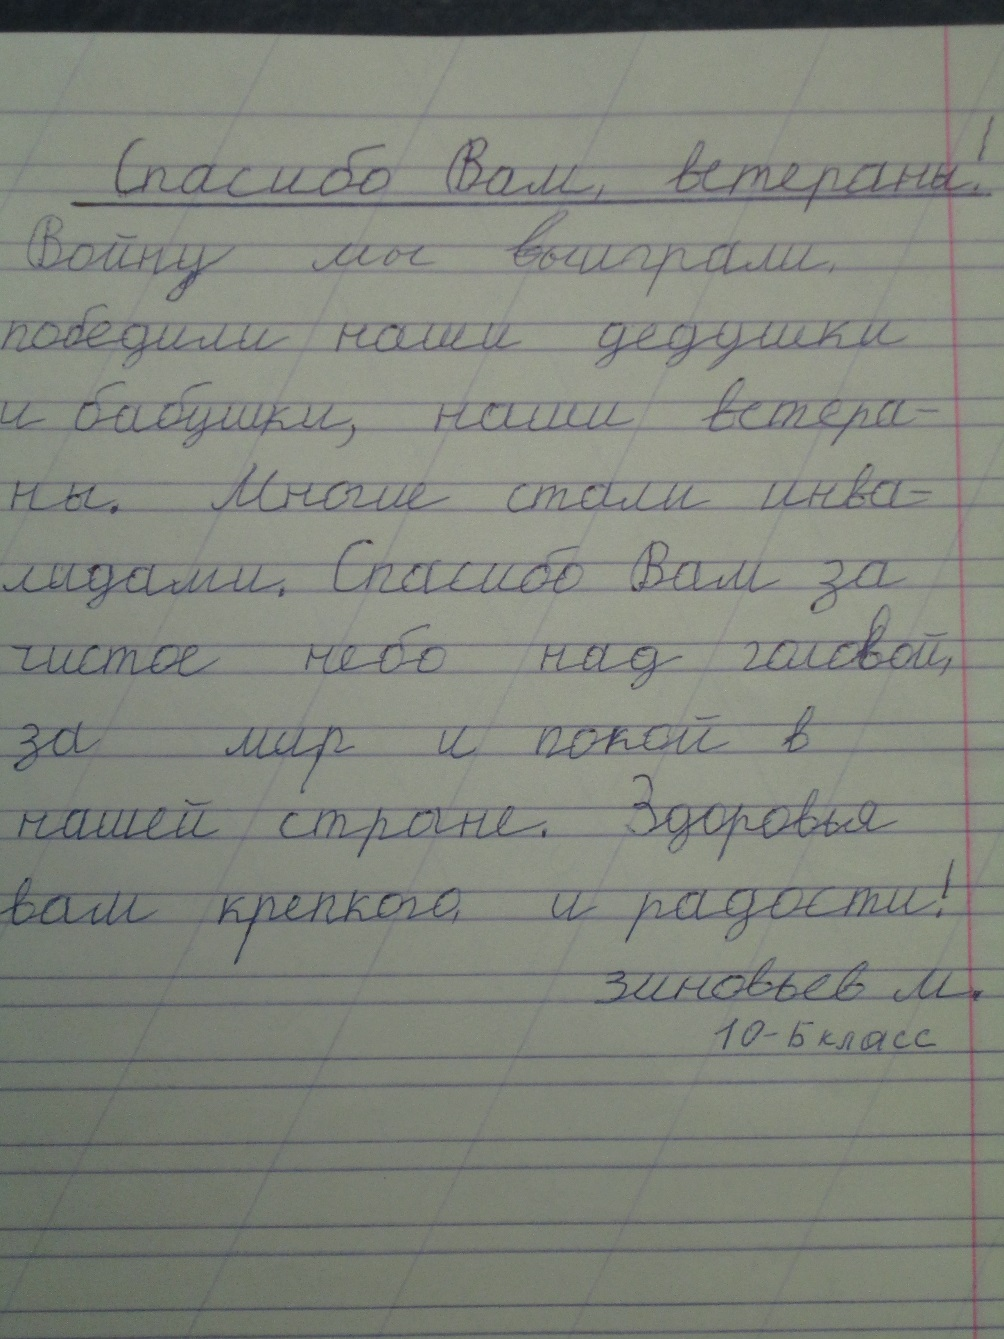 Спасибо Вам, ветераны!
Войну мы выиграли,
победили наши дедушки
и бабушки, наши ветера-
ны. Многие стали инва-
лидами. Спасибо Вам за
чистое небо над головой,
за мир и покой в
нашей стране. Здоровья
вам крепкого и радости!
Зиновьев М.
10-Б класс